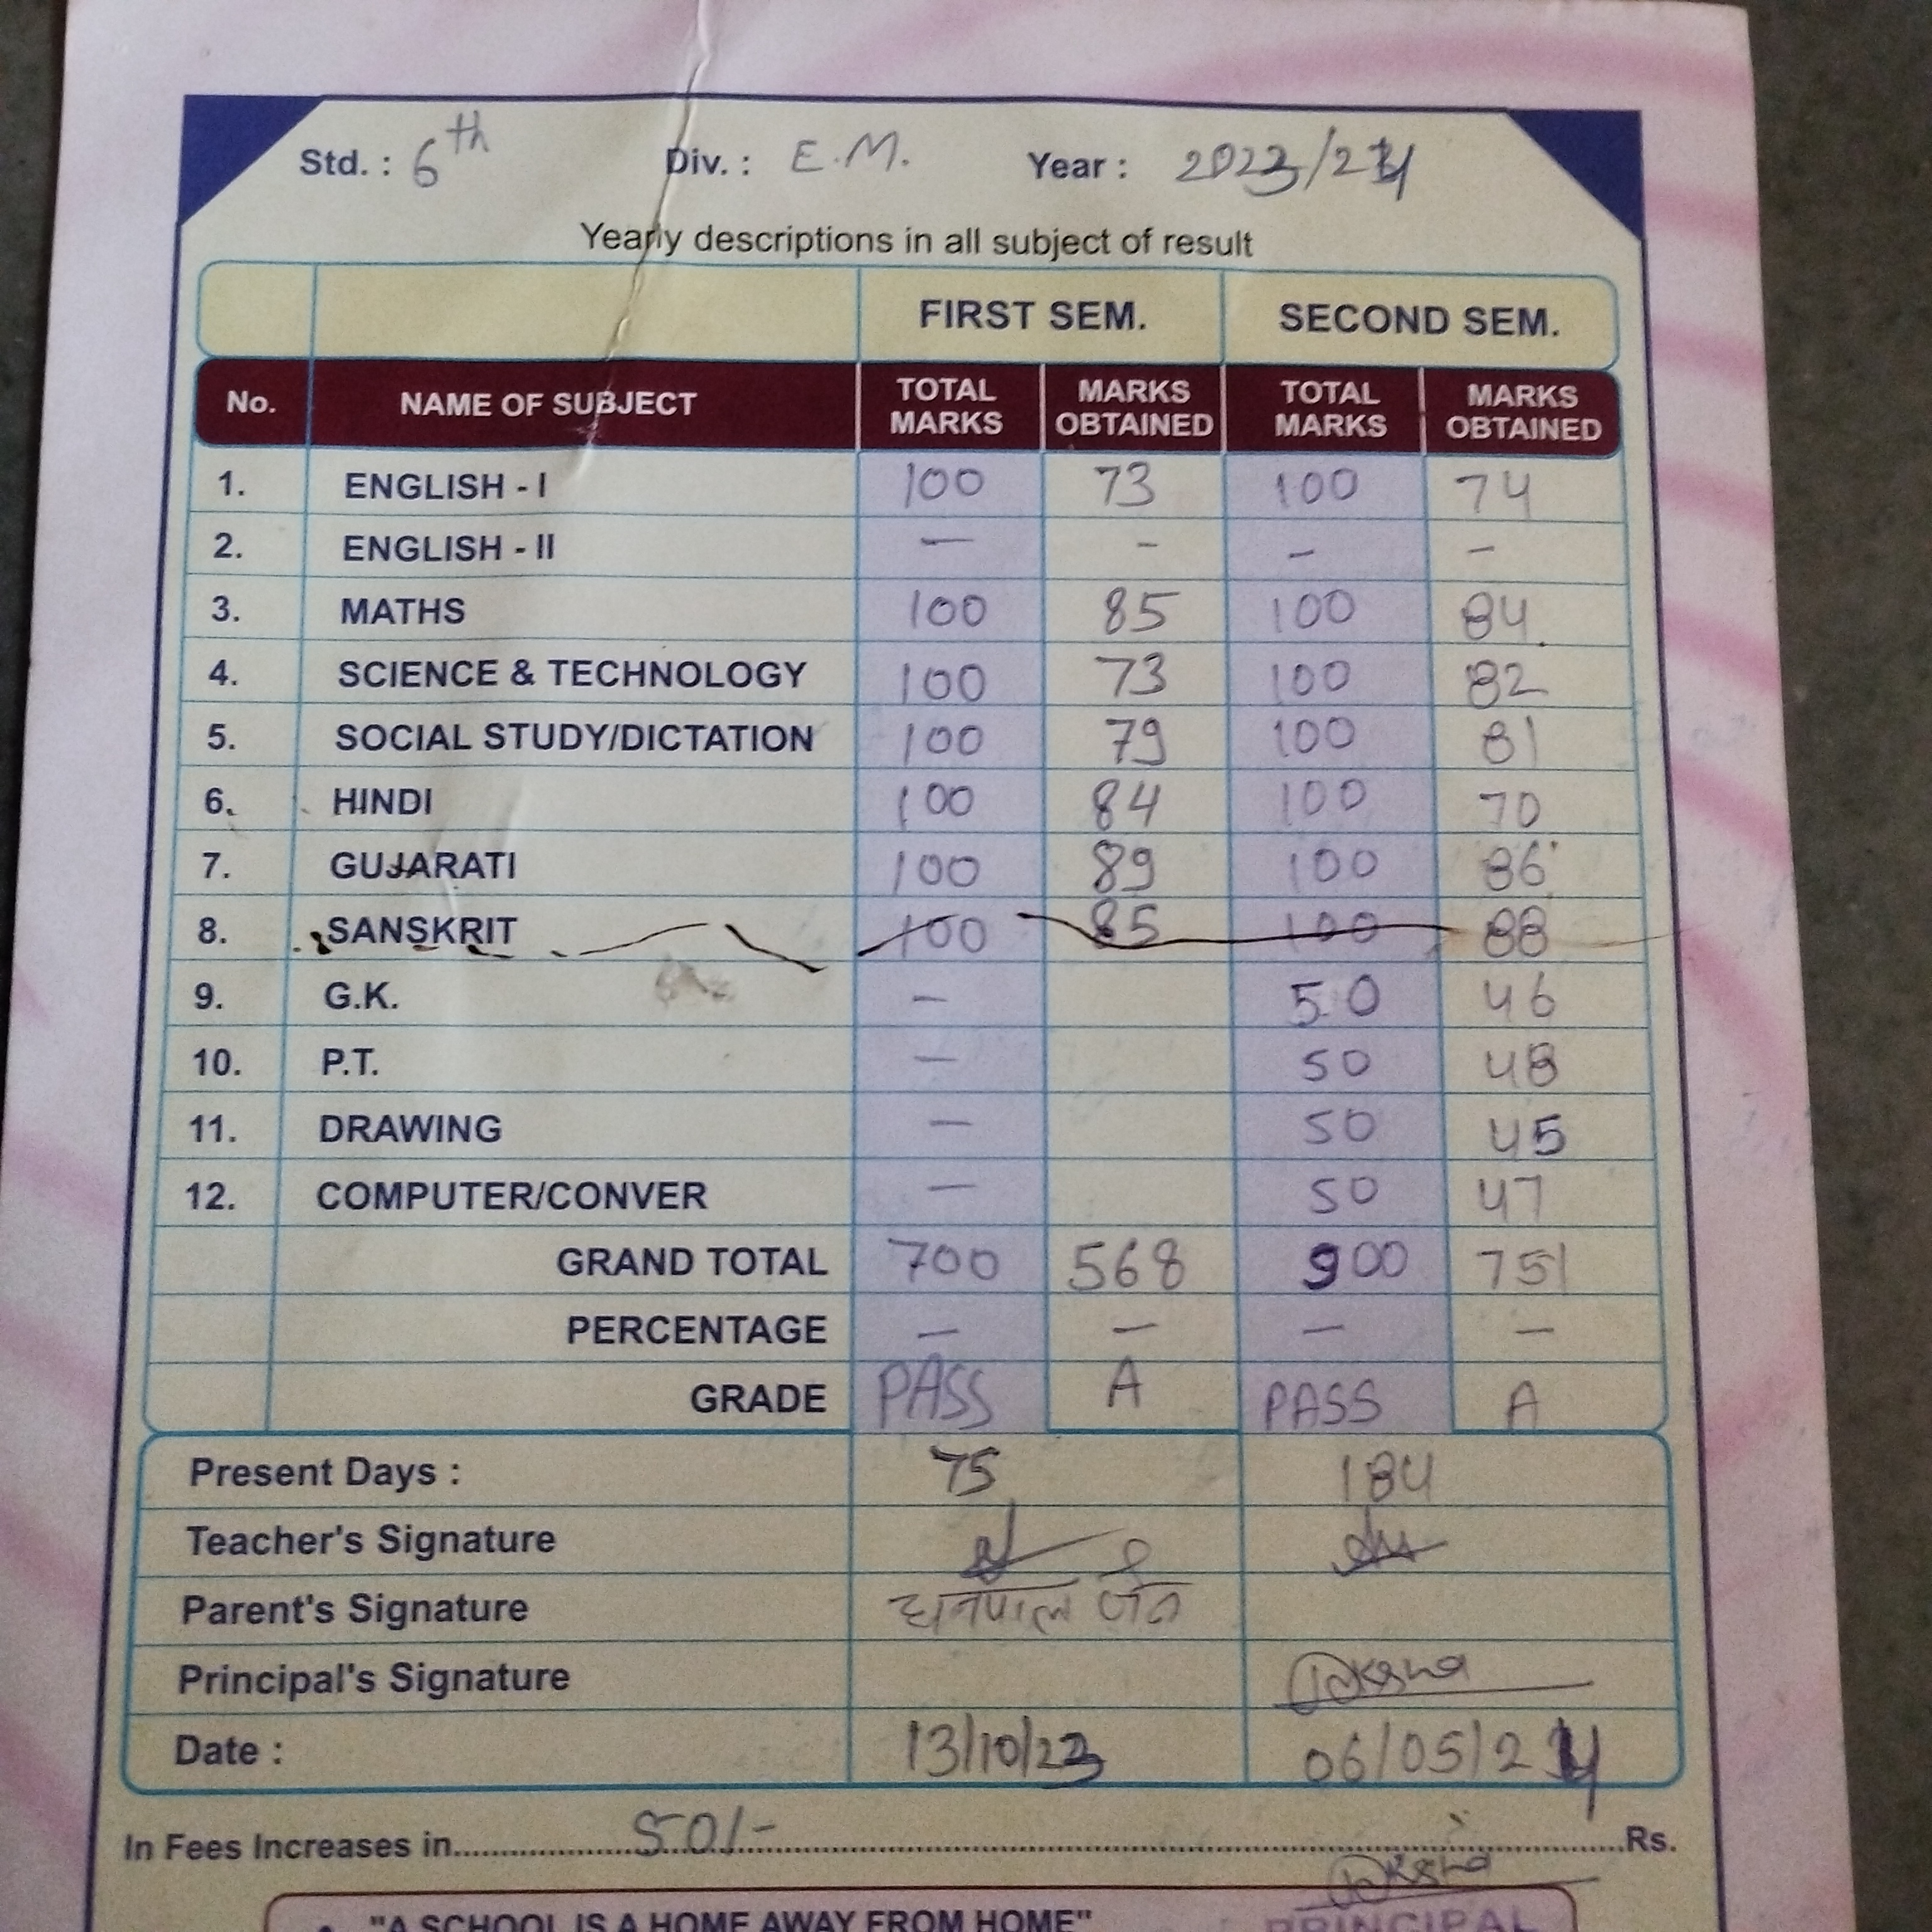 Std. : 6th Div. : E.M. Year : 2023/24
Yearly descriptions in all subject of result
FIRST SEM. SECOND SEM.
No. NAME OF SUBJECT TOTAL MARKS MARKS OBTAINED TOTAL MARKS MARKS OBTAINED
1. ENGLISH - I 100 73 100 74
2. ENGLISH - II — - - -
3. MATHS 100 85 100 84
4. SCIENCE & TECHNOLOGY 100 73 100 82
5. SOCIAL STUDY/DICTATION 100 79 100 81
6. HINDI 100 84 100 70
7. GUJARATI 100 89 100 86
8. SANSKRIT 100 85 100 88
9. G.K. — 50 46
10. P.T. — 50 48
11. DRAWING — 50 45
12. COMPUTER/CONVER — 50 47
GRAND TOTAL 700 568 900 751
PERCENTAGE — — — —
GRADE PASS A PASS A
Present Days : 75 184
Teacher's Signature
Parent's Signature धनपाल जैन
Principal's Signature
Date : 13/10/23 06/05/24
In Fees Increases in 50/- Rs.
"A SCHOOL IS A HOME AWAY FROM HOME"
PRINCIPAL